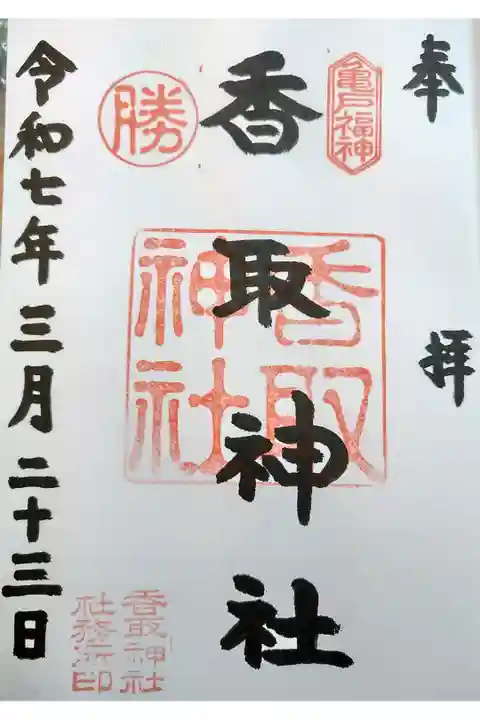 奉拝
亀戸福神
香取神社
勝
香取
神社
令和七年三月二十三日
香取神社
社務所印